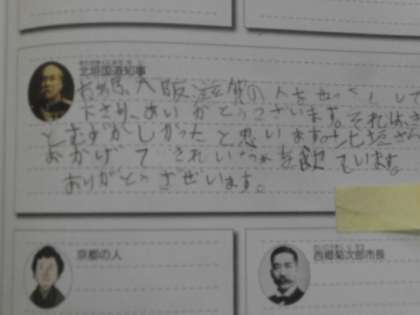 北垣国道知事
大阪、滋賀の人をせっとくして
下さり、ありがとうございます。それは、
とむずかしかったと思います。北垣さん
おかげできれいな水を飲ています。
ありがとうございます。
京都の人
西郷菊次郎市長